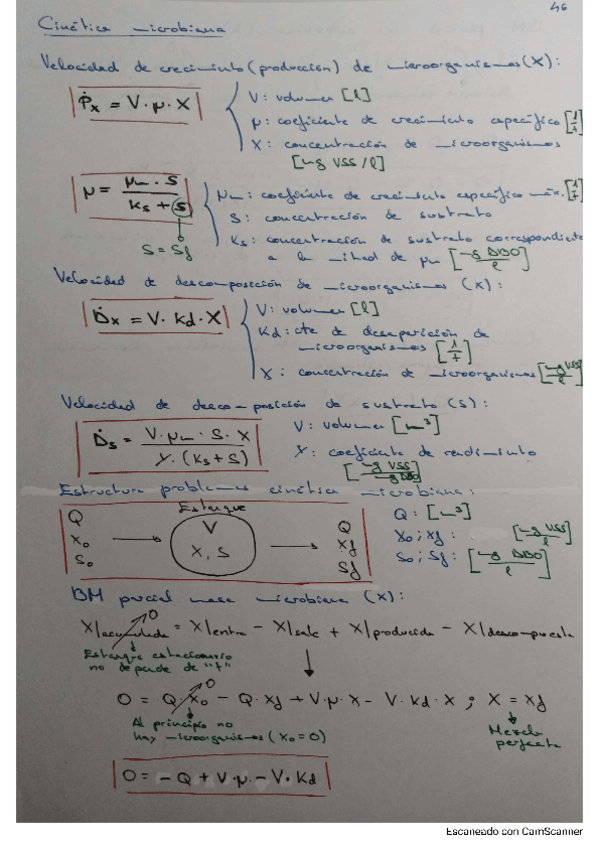 46
Cinética microbiana
Velocidad de crecimiento (producción) de microorganismos (X):
Ṗx = V·μ·X
V: volumen [l]
μ: coeficiente de crecimiento específico [1/t]
X: concentración de microorganismos
[mg VSS/l]
μ = μm·S / (Ks + S)
S = Sf
μm: coeficiente de crecimiento específico máx. [1/t]
S: concentración de sustrato
Ks: concentración de sustrato correspondiente
a la mitad de μm [mg DBO/l]
Velocidad de descomposición de microorganismos (X):
Ḋx = V·Kd·X
V: volumen [l]
Kd: cte de desaparición de
microorganismos [1/t]
X: concentración de microorganismos [mg VSS/l]
Velocidad de descomposición de sustrato (S):
Ḋs = V·μm·S·X / (Y·(Ks+S))
V: volumen [m³]
Y: coeficiente de rendimiento
[mg VSS/mg DBO]
Estructura problemas cinética microbiana:
Estanque
Q
X₀
S₀
V
X, S
Q
Xf
Sf
Q: [m³]
X₀; Xf: [mg VSS/l]
S₀; Sf: [mg DBO/l]
BM parcial masa microbiana (X):
0
X|acumulada = X|entra − X|sale + X|producida − X|descompuesta
Estanque estacionario
no depende de "t"
0
0 = Q·X₀ − Q·Xf + V·μ·X − V·Kd·X ; X = Xf
Al principio no
hay microorganismos (X₀=0)
Mezcla
perfecta
0 = −Q + V·μ − V·Kd
Escaneado con CamScanner